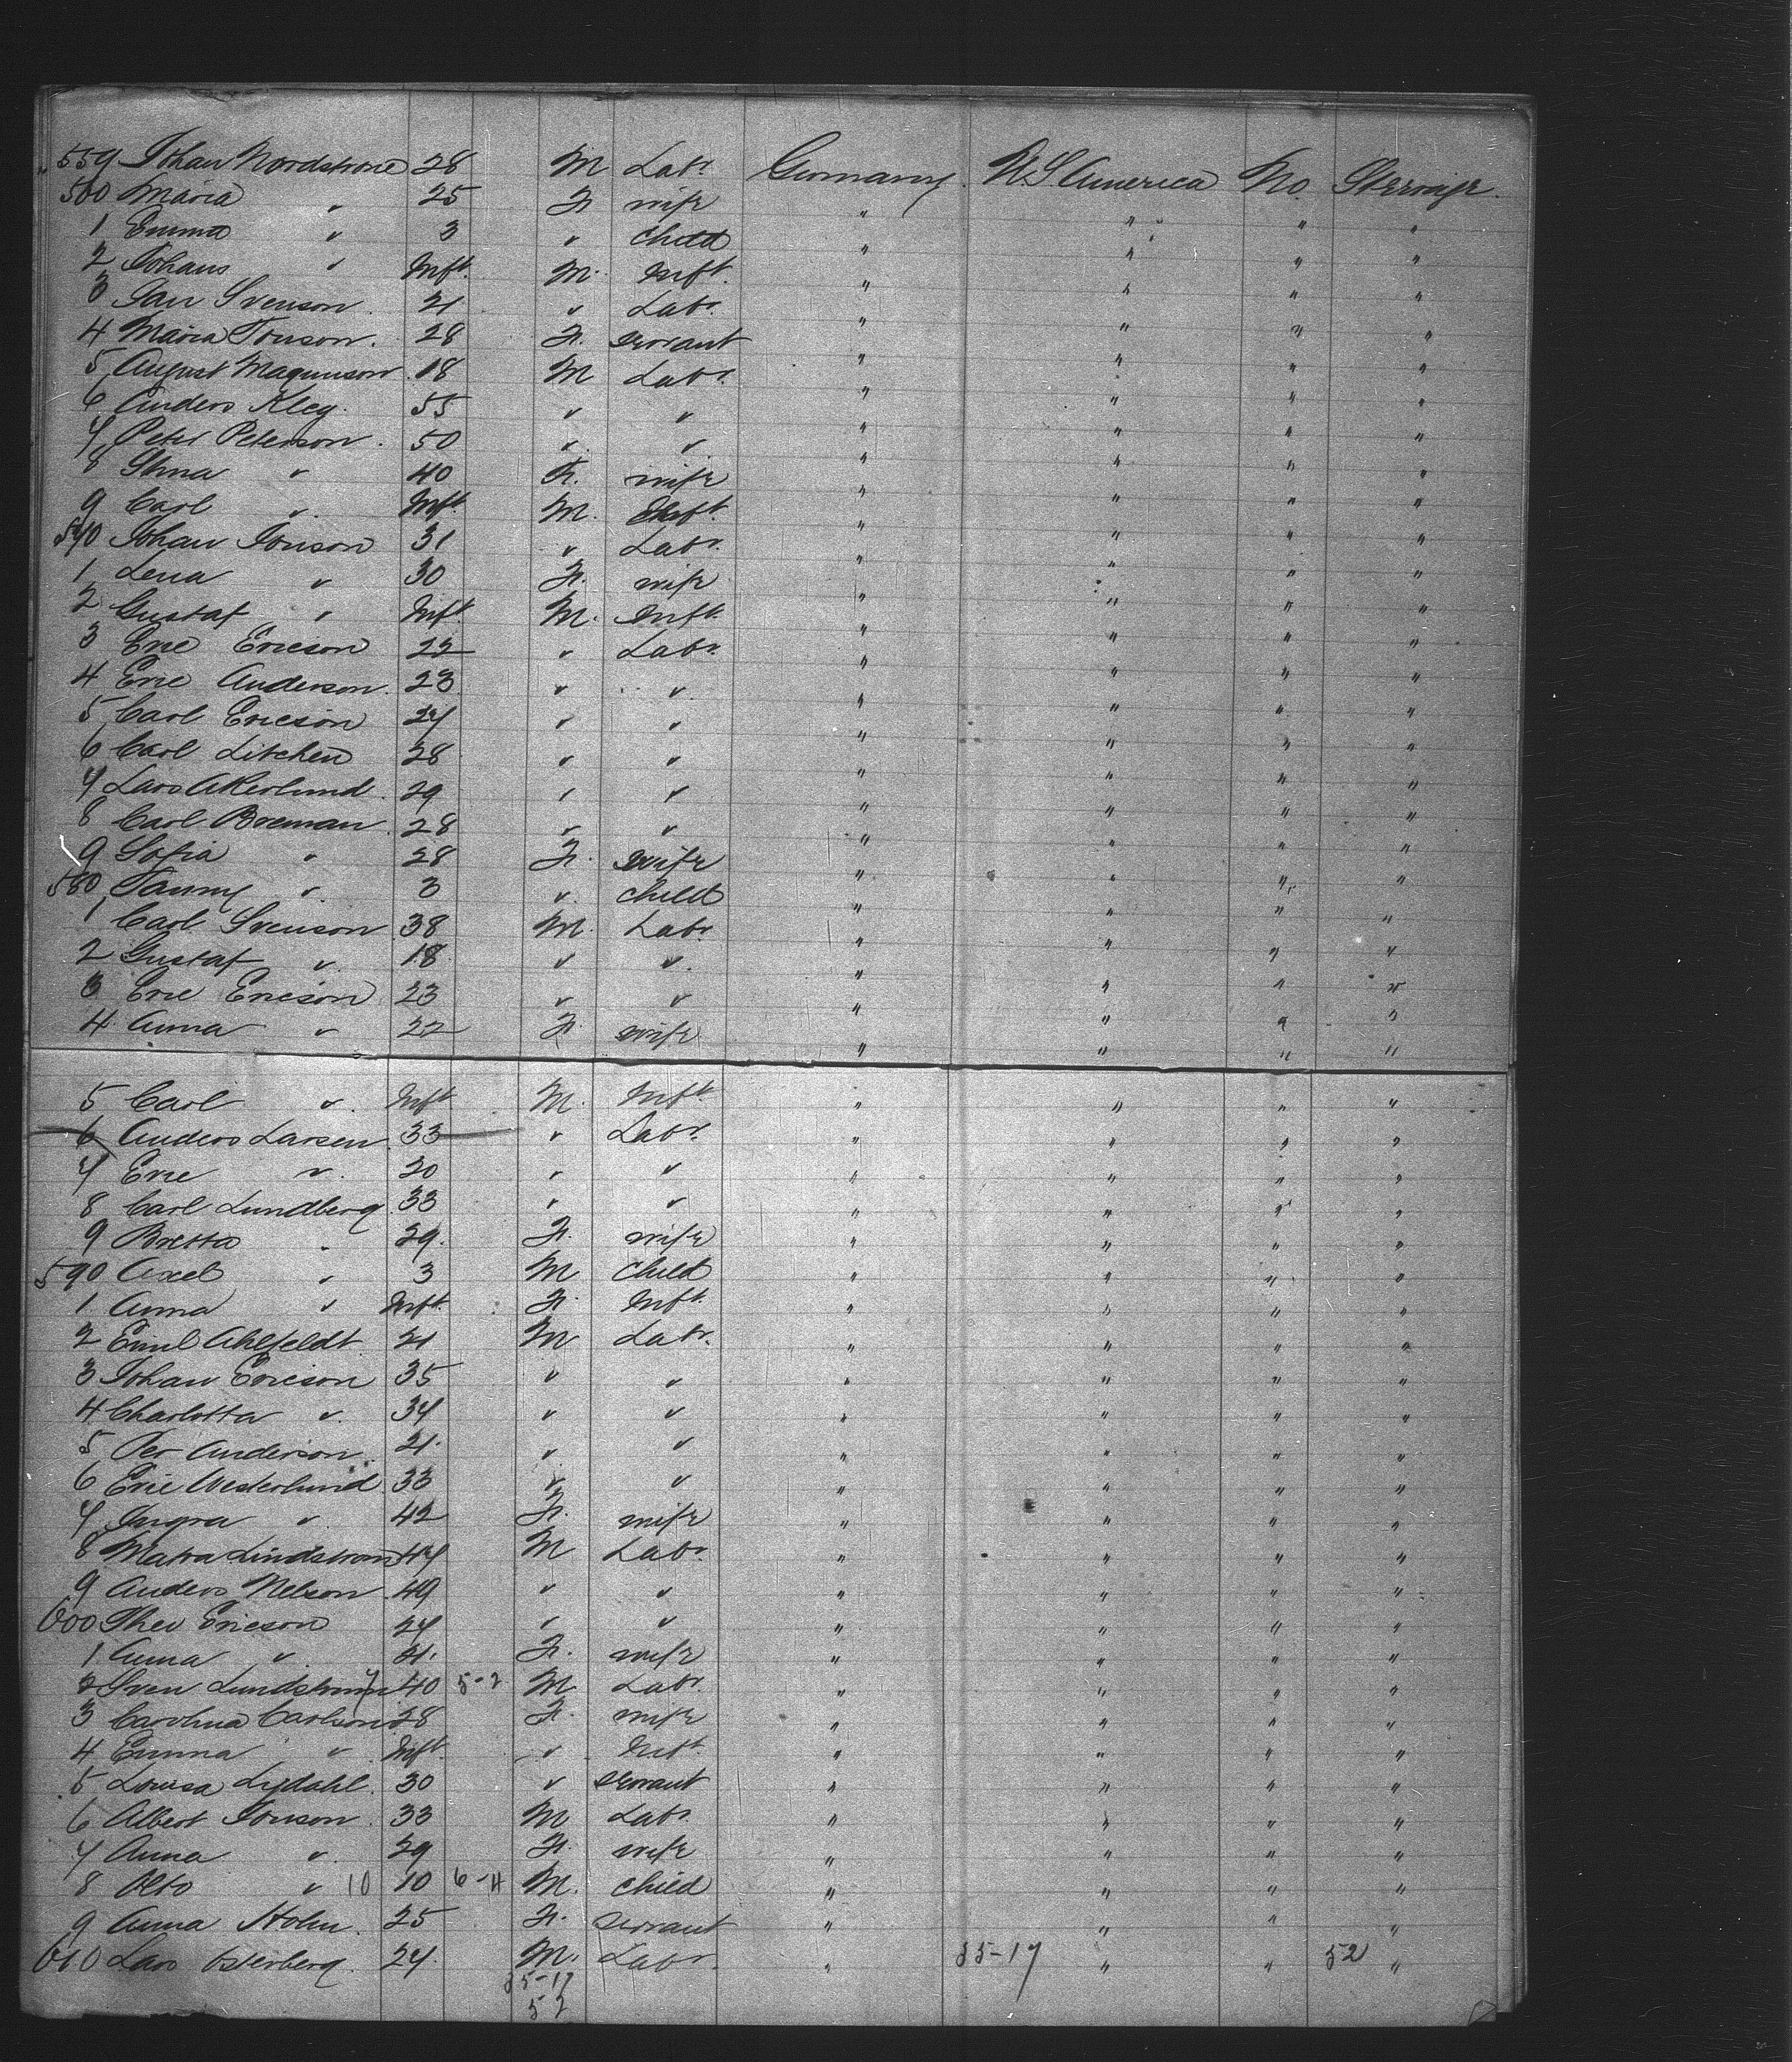 559 Johan Nordstrone 28 M Labr. Germany. U S America No. Steerage.
560 Maria " 25 F. wife " " " "
1 Emma " 3 " child " " " "
2 Johans " Inft. M. Inft. " " " "
3 Jan Svenson. 21 " Labr. " " " "
4 Maria Jonson. 28 F. servant " " " "
5 August Magnuson. 18 M Labr. " " " "
6 Anders Kleg. 55 " " " " " "
7 Peter Peterson. 50 " " " " " "
8 Stina " 40 F. wife " " " "
9 Carl " Inft. M. Inft. " " " "
570 Johan Jonson 31 " Labr. " " " "
1 Lena " 30 F. wife " " " "
2 Gustaf " Inft. M. Inft. " " " "
3 Eric Ericson 22 " Labr. " " " "
4 Eric Anderson. 23 " " " " " "
5 Carl Ericson 27 " " " " " "
6 Carl Litchen 28 " " " " " "
7 Lars Akerlund. 29 " " " " " "
8 Carl Broman. 28 " " " " " "
9 Sofia " 28 F. wife " " " "
580 Fanny " 3 " child " " " "
1 Carl Svenson 38 M. Labr. " " " "
2 Gustaf " 18 " " " " " "
3 Eric Ericson 23 " " " " " "
4 Anna " 22 F. wife " " " "
5 Carl " Inft. M. Inft " " " "
6 Anders Larsen 33 " Labr. " " " "
7 Eric " 20 " " " " " "
8 Carl Lundberg 33 " " " " " "
9 Bretta " 29. F. wife " " " "
590 Axel " 3 M child " " " "
1 Anna " Inft. F. Inft. " " " "
2 Emil Ahlfeldt. 21 M Labr. " " " "
3 Johan Ericson 35 " " " " " "
4 Charlotta " 34 " " " " " "
5 Per Anderson. 21. " " " " " "
6 Eric Westerlund 33 " " " " " "
7 Ingra " 42 F. wife " " " "
8 Matra Lindstrom 47 M Labr. " " " "
9 Anders Nelson. 49 " " " " " "
600 Theo Ericson 27 " " " " " "
1 Anna " 21. F. wife " " " "
2 Sven Lundstrom 40 5-2 M. Labr. " " " "
3 Carolina Carlson 28 F. wife " " " "
4 Emma " Inft. " Inft. " " " "
5 Louisa Lydahl. 30 " servant " " " "
6 Albert Jonson. 33 M Labr. " " " "
7 Anna " 29 F. wife " " " "
8 Otto " 10 10 6-11 M. child " " " "
9 Anna Holm. 25 F. servant " " " "
610 Lars Osterberg. 24. M. Labr. " 35-17 " " 52 "
35-17
52